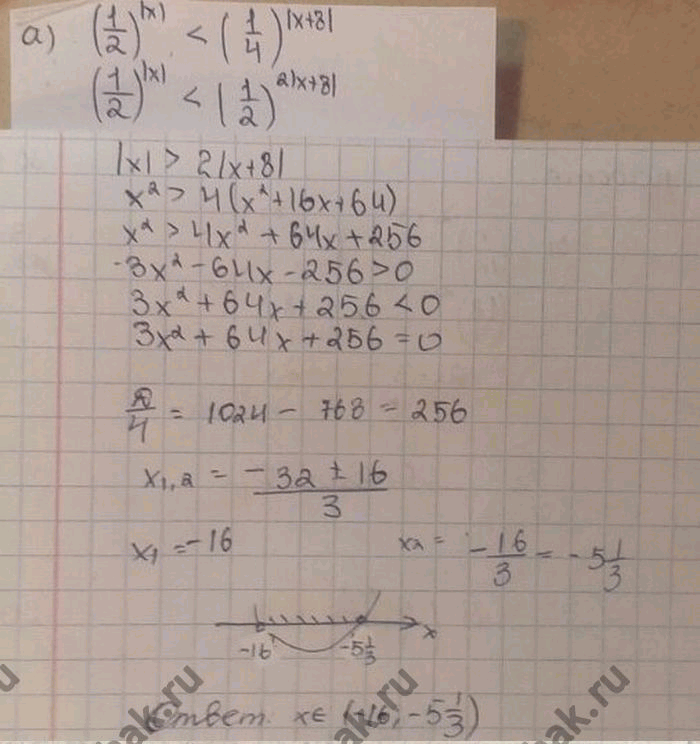 а) (1/2)^|x| < (1/4)^|x+8|
(1/2)^|x| < (1/2)^2|x+8|
|x| > 2|x+8|
x² > 4(x²+16x+64)
x² > 4x² + 64x + 256
-3x² - 64x - 256 > 0
3x² + 64x + 256 < 0
3x² + 64x + 256 = 0
D/4 = 1024 - 768 = 256
x₁,₂ = (-32 ± 16)/3
x₁ = -16 x₂ = -16/3 = -5 1/3
-16 -5 1/3 x
Ответ: x∈ (-16; -5 1/3)
ak.ru